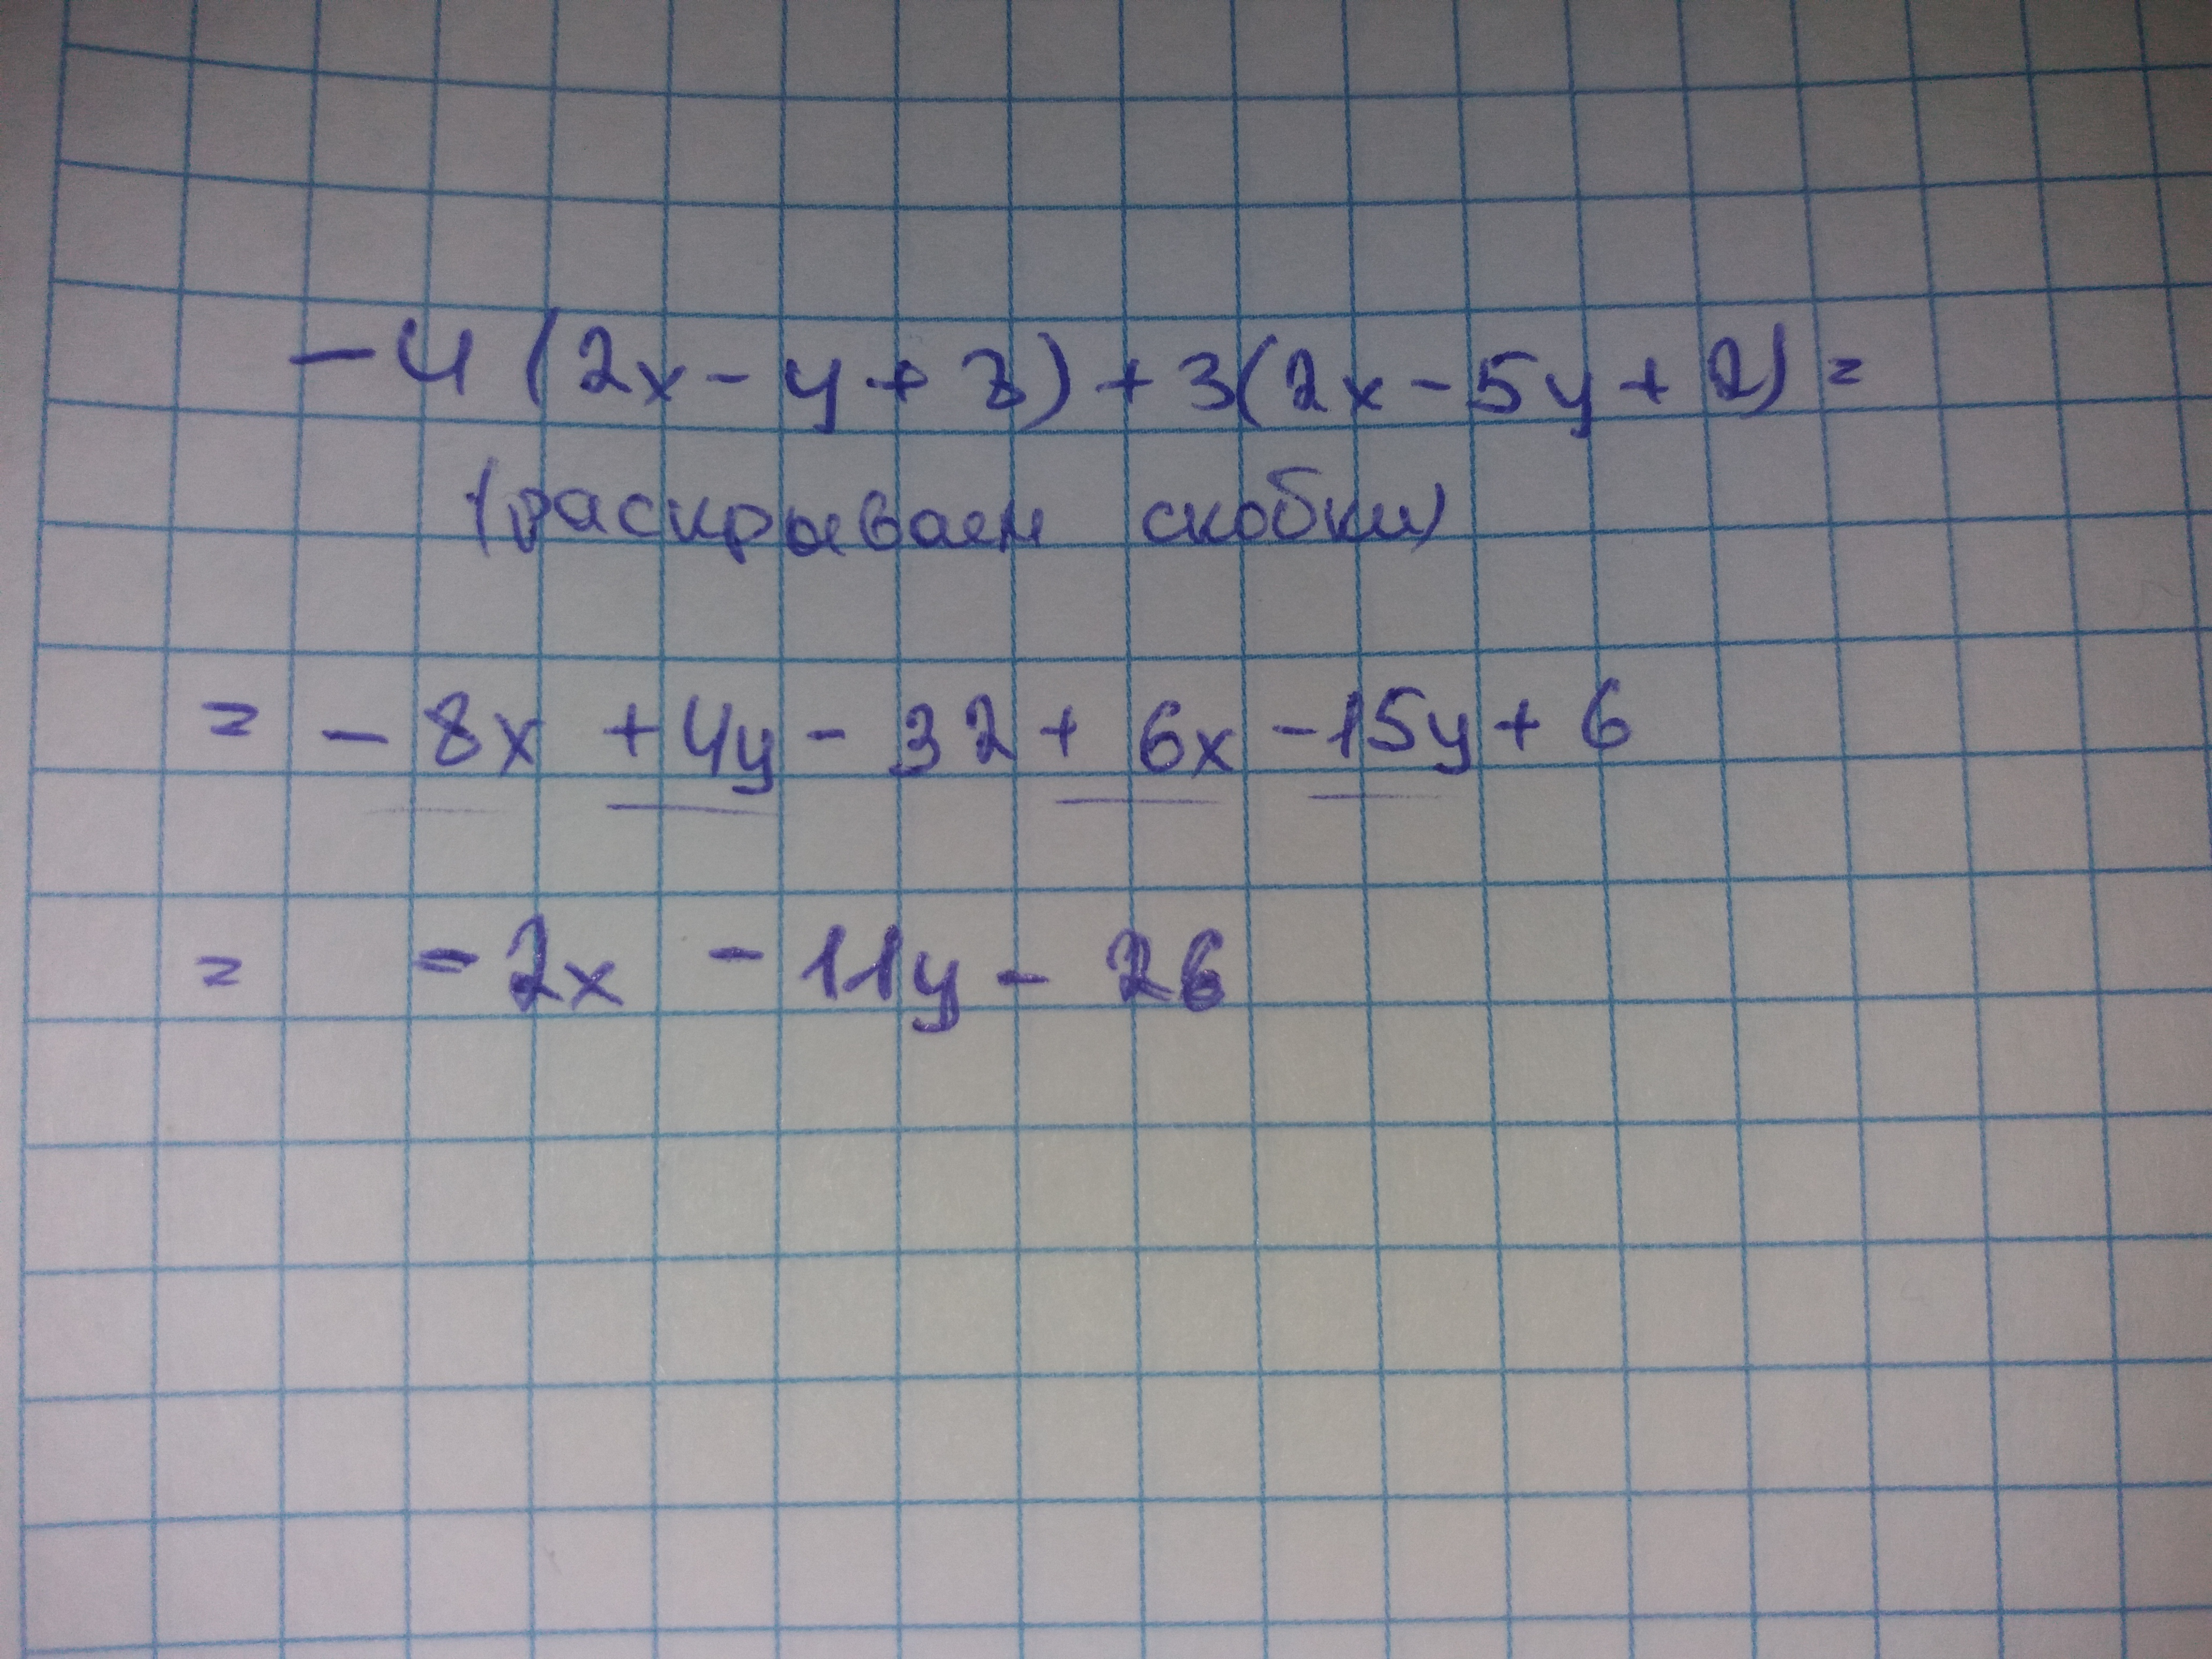 -4(2x-y+8)+3(2x-5y+2)=
(раскрываем скобки)
= -8x +4y - 32 + 6x -15y + 6
= -2x - 11y - 26